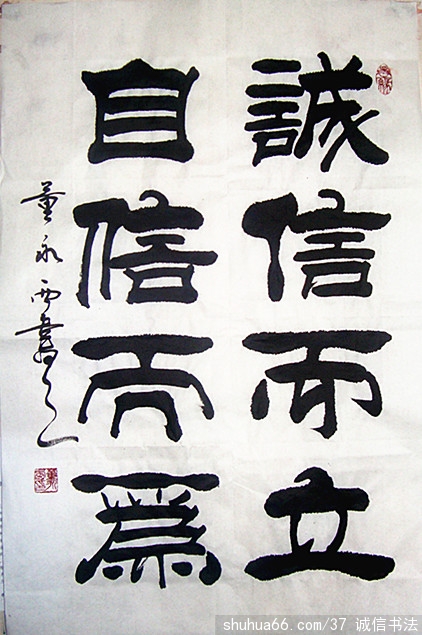 誠信而立
自信而為
董永西書之
shuhua66.com/37 诚信书法